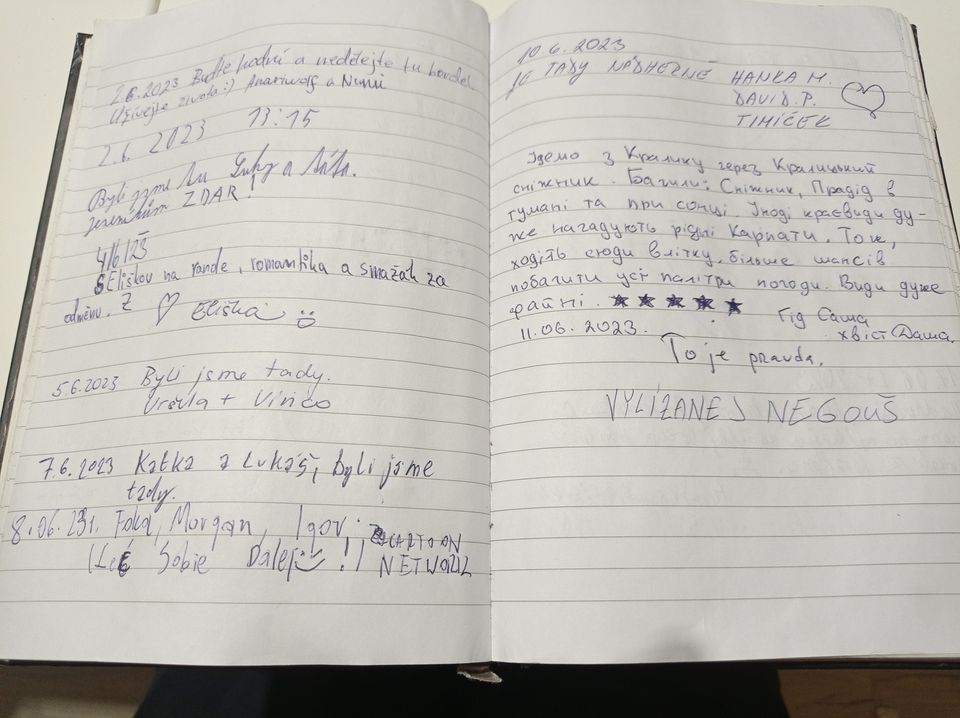 2.6.2023 Buďte hodní a nedělejte tu bordel
Užívejte života :) Anariwolf a Ninú
2.6.2023 13:15
Byli jsme tu Luky a Báťa.
ZDAR!
4/6/23
S Eliškou na rande, romantika a smažák za
odměnu. Z ♡ Eliška
5.6.2023 Byli jsme tady.
Uršula + Vinco
7.6.2023 Katka a Lukáš, Byli jsme
tady.
8.06.23r. Foka, Morgan, Igor;
(Leć Sobie Dalej !) CARTOON
NETWORK
10.6.2023
JE TADY NÁDHERNĚ HANKA M.
DAVID.P.
TIMÍČEK
Ідемо з Кралику через Кралицький
сніжник. Бачили: Сніжник, Прадід в
тумані та при сонці. Іноді краєвиди ду-
же нагадують рідні Карпати. Тож,
ходіть сюди влітку, більше шансів
побачити усі палітри погоди. Види дуже
файні. ★ ★ ★ ★ ★ Гід Саша
11.06.2023. хвіст Даша.
To je pravda.
VYLÍZANEJ NEGOUŠ